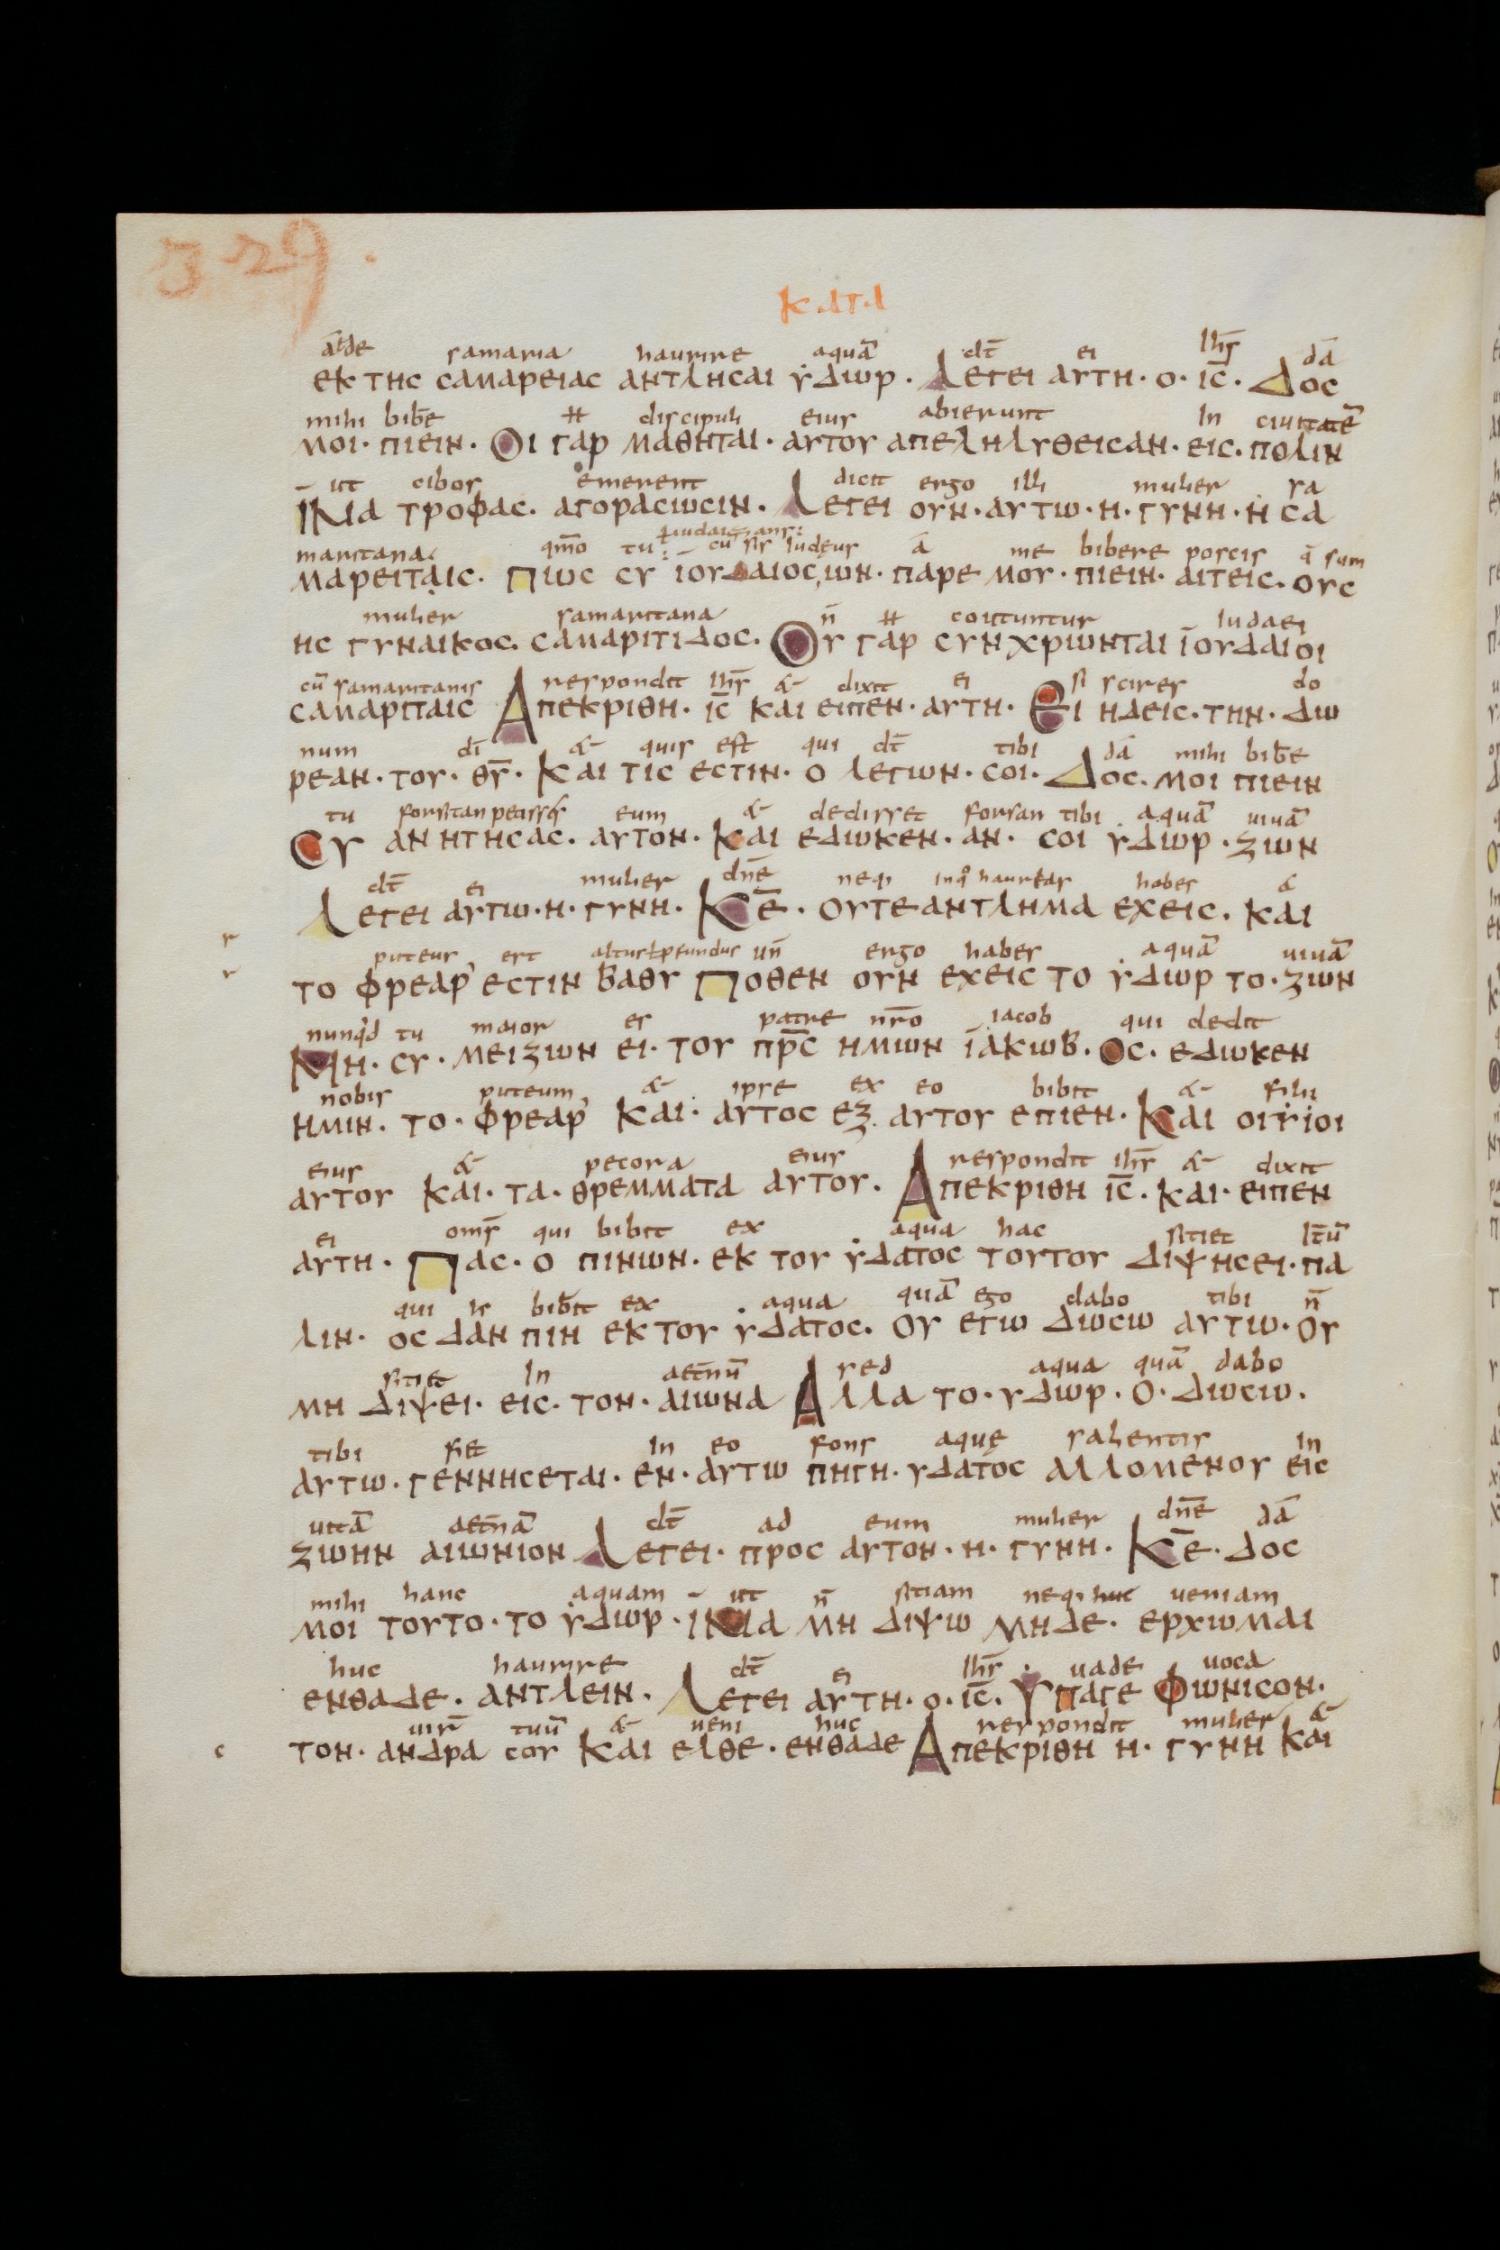 329.
ΚΑΤΑ
de samaria haurire aquā dt̄ ei Ihs̄ dā
ΕΚ ΤΗC CΑΜΑΡΕΙΑC ΑΝΤΛΗCΑΙ ΥΔΩΡ · ΛΕΓΕΙ ΑΥΤΗ · Ο · ΙC̄ · ΔΟC
mihi bibe discipuli eius abierunt In ciuitatē
ΜΟΙ · ΠΙΕΙΝ · ΟΙ ΓΑΡ ΜΑΘΗΤΑΙ · ΑΥΤΟΥ ΑΠΕΛΗΛΥΘΕΙCΑΝ · ΕΙC · ΠΟΛΙΝ
ut cibos emerent dicit ergo illi mulier sa
ΙΝΑ ΤΡΟΦΑC · ΑΓΟΡΑCΩCΙΝ · ΛΕΓΕΙ ΟΥΝ · ΑΥΤΩ · Η · ΓΥΝΗ · Η CΑ
maritana qm̄o tu cū sis iudeus ā me bibere poscis q̄ sum
ΜΑΡΕΙΤΑΙC · ΠΩC CΥ ΙΟΥΔΑΙΟC ΩΝ · ΠΑΡΕ ΜΟΥ · ΠΙΕΙΝ · ΑΙΤΕΙC · ΟΥC
mulier samaritana n̄ coutuntur Iudaei
ΗC ΓΥΝΑΙΚΟC · CΑΜΑΡΙΤΙΔΟC · ΟΥ ΓΑΡ CΥΝΧΡΩΝΤΑΙ ΙΟΥΔΑΙΟΙ
cū samaritanis respondit Ihs̄ & dixit ei si scires do
CΑΜΑΡΙΤΑΙC ΑΠΕΚΡΙΘΗ · ΙC̄ ΚΑΙ ΕΙΠΕΝ · ΑΥΤΗ · ΕΙ ΗΔΕΙC · ΤΗΝ · ΔΩ
num dī & quis est qui dt̄ tibi dā mihi bibe
ΡΕΑΝ · ΤΟΥ · ΘῩ · ΚΑΙ ΤΙC ΕCΤΙΝ · Ο ΛΕΓΩΝ · CΟΙ · ΔΟC · ΜΟΙ ΠΙΕΙΝ
tu forsitan petisses eum & dedisset forsan tibi aquā uiuā
CΥ ΑΝ ΗΤΗCΑC · ΑΥΤΟΝ · ΚΑΙ ΕΔΩΚΕΝ · ΑΝ · CΟΙ ΥΔΩΡ · ΖΩΝ
dt̄ ei mulier dnē neq; inq° haurias habes &
ΛΕΓΕΙ ΑΥΤΩ · Η · ΓΥΝΗ · ΚΕ̄ · ΟΥΤΕ ΑΝΤΛΗΜΑ ΕΧΕΙC · ΚΑΙ
puteus est altus ł profundus un̄ ergo habes aquā uiuā
ΤΟ ΦΡΕΑΡ ΕCΤΙΝ ΒΑΘΥ ΠΟΘΕΝ ΟΥΝ ΕΧΕΙC ΤΟ ΥΔΩΡ ΤΟ · ΖΩΝ
nunqd tu maior es patre nr̄o iacob qui dedit
ΜΗ · CΥ · ΜΕΙΖΩΝ ΕΙ · ΤΟΥ ΠΡ̄C ΗΜΩΝ ΙΑΚΩΒ · ΟC · ΕΔΩΚΕΝ
nobis puteum & ipse ex eo bibit & filii
ΗΜΙΝ · ΤΟ · ΦΡΕΑΡ ΚΑΙ · ΑΥΤΟC ΕΞ ΑΥΤΟΥ ΕΠΙΕΝ · ΚΑΙ ΟΙ ΥΙΟΙ
eius & pecora eius respondit ihs̄ & dixit
ΑΥΤΟΥ ΚΑΙ · ΤΑ · ΘΡΕΜΜΑΤΑ ΑΥΤΟΥ · ΑΠΕΚΡΙΘΗ ΙC̄ · ΚΑΙ · ΕΙΠΕΝ
ei oms̄ qui bibit ex aqua hac sitiet It̄ū
ΑΥΤΗ · ΠΑC · Ο ΠΙΝΩΝ · ΕΚ ΤΟΥ ΥΔΑΤΟC ΤΟΥΤΟΥ ΔΙΨΗCΕΙ · ΠΑ
qui bibit ex aqua quā ego dabo tibi n̄
ΛΙΝ · ΟC ΔΑΝ ΠΙΗ ΕΚ ΤΟΥ ΥΔΑΤΟC · ΟΥ ΕΓΩ ΔΩCΩ ΑΥΤΩ · ΟΥ
sitiet In aetnū sed aqua quā dabo
ΜΗ ΔΙΨΕΙ · ΕΙC · ΤΟΝ · ΑΙΩΝΑ ΑΛΛΑ ΤΟ · ΥΔΩΡ · Ο · ΔΩCΩ ·
tibi fiet In eo fons aquę salientis in
ΑΥΤΩ · ΓΕΝΝΗCΕΤΑΙ · ΕΝ · ΑΥΤΩ ΠΗΓΗ · ΥΔΑΤΟC ΑΛΛΟΜΕΝΟΥ ΕΙC
uitā aetnā dt̄ ad eum mulier dnē dā
ΖΩΗΝ ΑΙΩΝΙΟΝ ΛΕΓΕΙ · ΠΡΟC ΑΥΤΟΝ · Η · ΓΥΝΗ · ΚΕ̄ · ΔΟC
mihi hanc aquam ut n̄ sitiam neq; huc ueniam
ΜΟΙ ΤΟΥΤΟ · ΤΟ ΥΔΩΡ · ΙΝΑ ΜΗ ΔΙΨΩ ΜΗΔΕ · ΕΡΧΩΜΑΙ
huc haurire dt̄ ei Ihs̄ uade uoca
ΕΝΘΑΔΕ · ΑΝΤΛΕΙΝ · ΛΕΓΕΙ ΑΥΤΗ · Ο · ΙC̄ · ΥΠΑΓΕ ΦΩΝΙCΟΝ ·
uir̄ tuū & ueni huc respondit mulier &
ΤΟΝ · ΑΝΔΡΑ CΟΥ ΚΑΙ ΕΛΘΕ · ΕΝΘΑΔΕ ΑΠΕΚΡΙΘΗ Η · ΓΥΝΗ ΚΑΙ